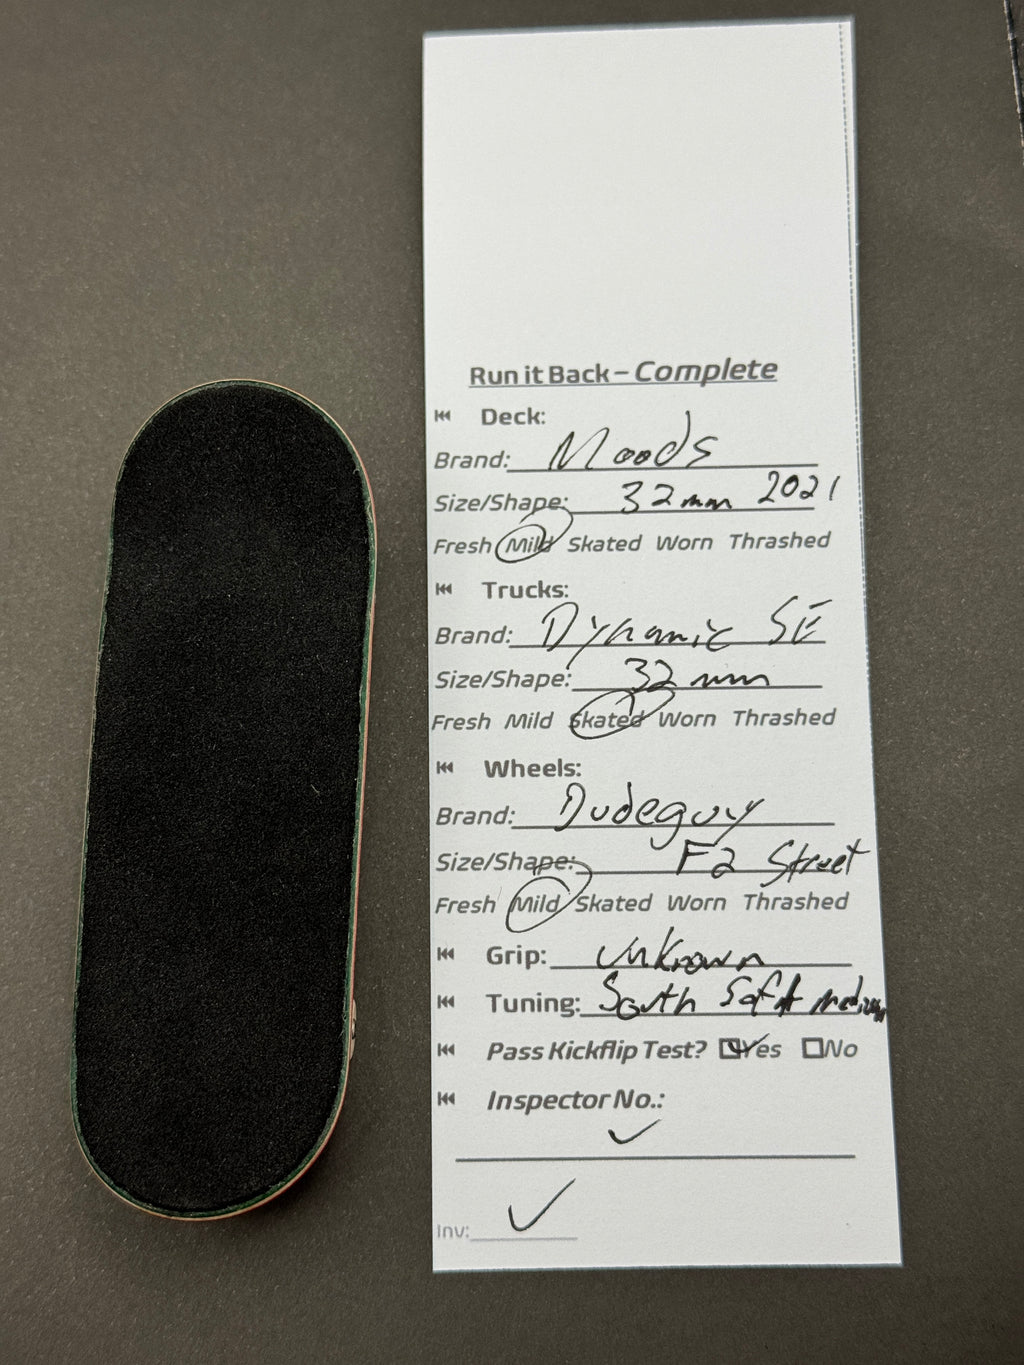 Run it Back – Complete
⏮ Deck:
Brand: Moods
Size/Shape: 32mm 2021
Fresh Mild Skated Worn Thrashed
⏮ Trucks:
Brand: Dynamic SE
Size/Shape: 32mm
Fresh Mild Skated Worn Thrashed
⏮ Wheels:
Brand: Dudeguy
Size/Shape: F2 Street
Fresh Mild Skated Worn Thrashed
⏮ Grip: Unknown
⏮ Tuning: South Soft Medium
⏮ Pass Kickflip Test? ☑Yes ☐No
⏮ Inspector No.:
✓
Inv: ✓